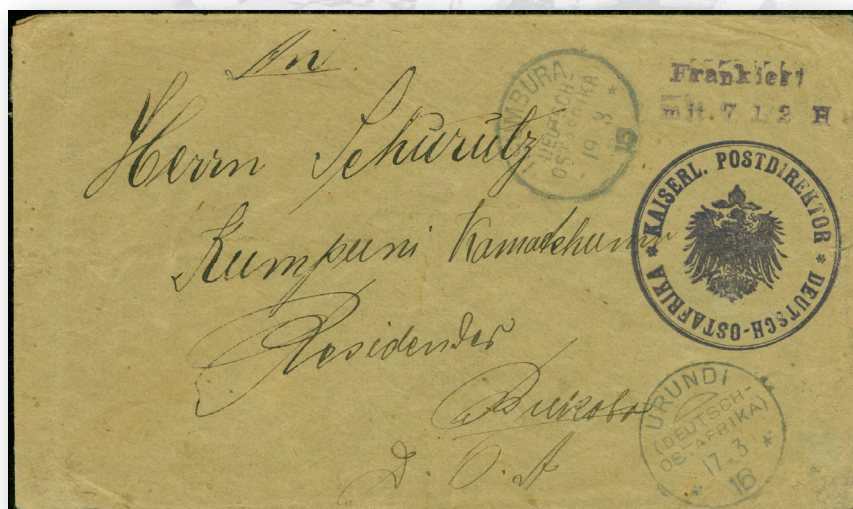 An
Herrn Schurutz
Kumpuni
Residender
Bukoba
D. O. A
USUMBURA
(DEUTSCH-
OSTAFRIKA)
19 3 *
16
Frankiert
mit 7 1/2 H
* KAISERL. POSTDIREKTOR * DEUTSCH-OSTAFRIKA
URUNDI
(DEUTSCH-
OSTAFRIKA)
* 17.3 *
16